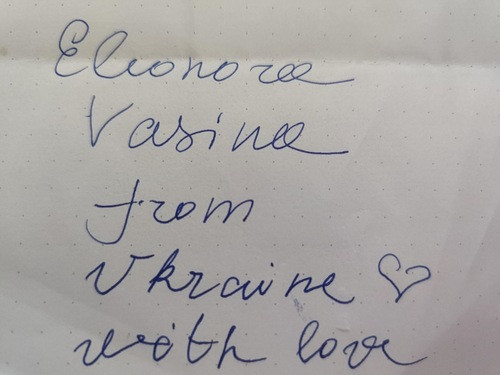 Eleonora
Vasina
from
Ukraine ♡
with love